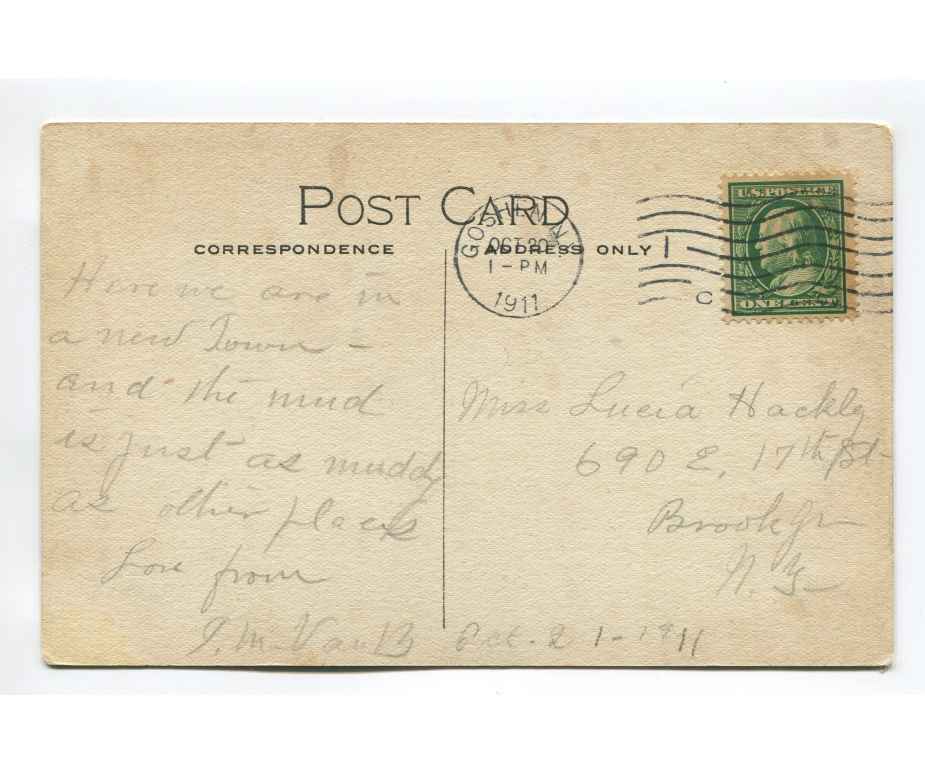 POST CARD
CORRESPONDENCE
ADDRESS ONLY
GOSHEN
OCT 20
1-PM
1911
1
C
U.S. POSTAGE
ONE CENT
Here we are in
a new Town -
and the mud
is just as muddy
as other places
Love from
I. M. Van B
Miss Lucia Hackly
690 E, 17th St-
Brooklyn
N.Y-
Oct. 21-1911